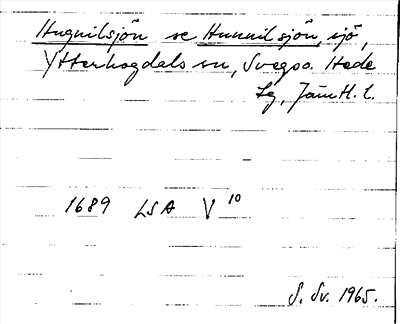 Hugnilsjön se Hunnilsjön, sjö,
Ytterhogdals sn, Svegso. Hede
tg, Jämtl. l.
1689 LSA V 10
S. Sv. 1965.